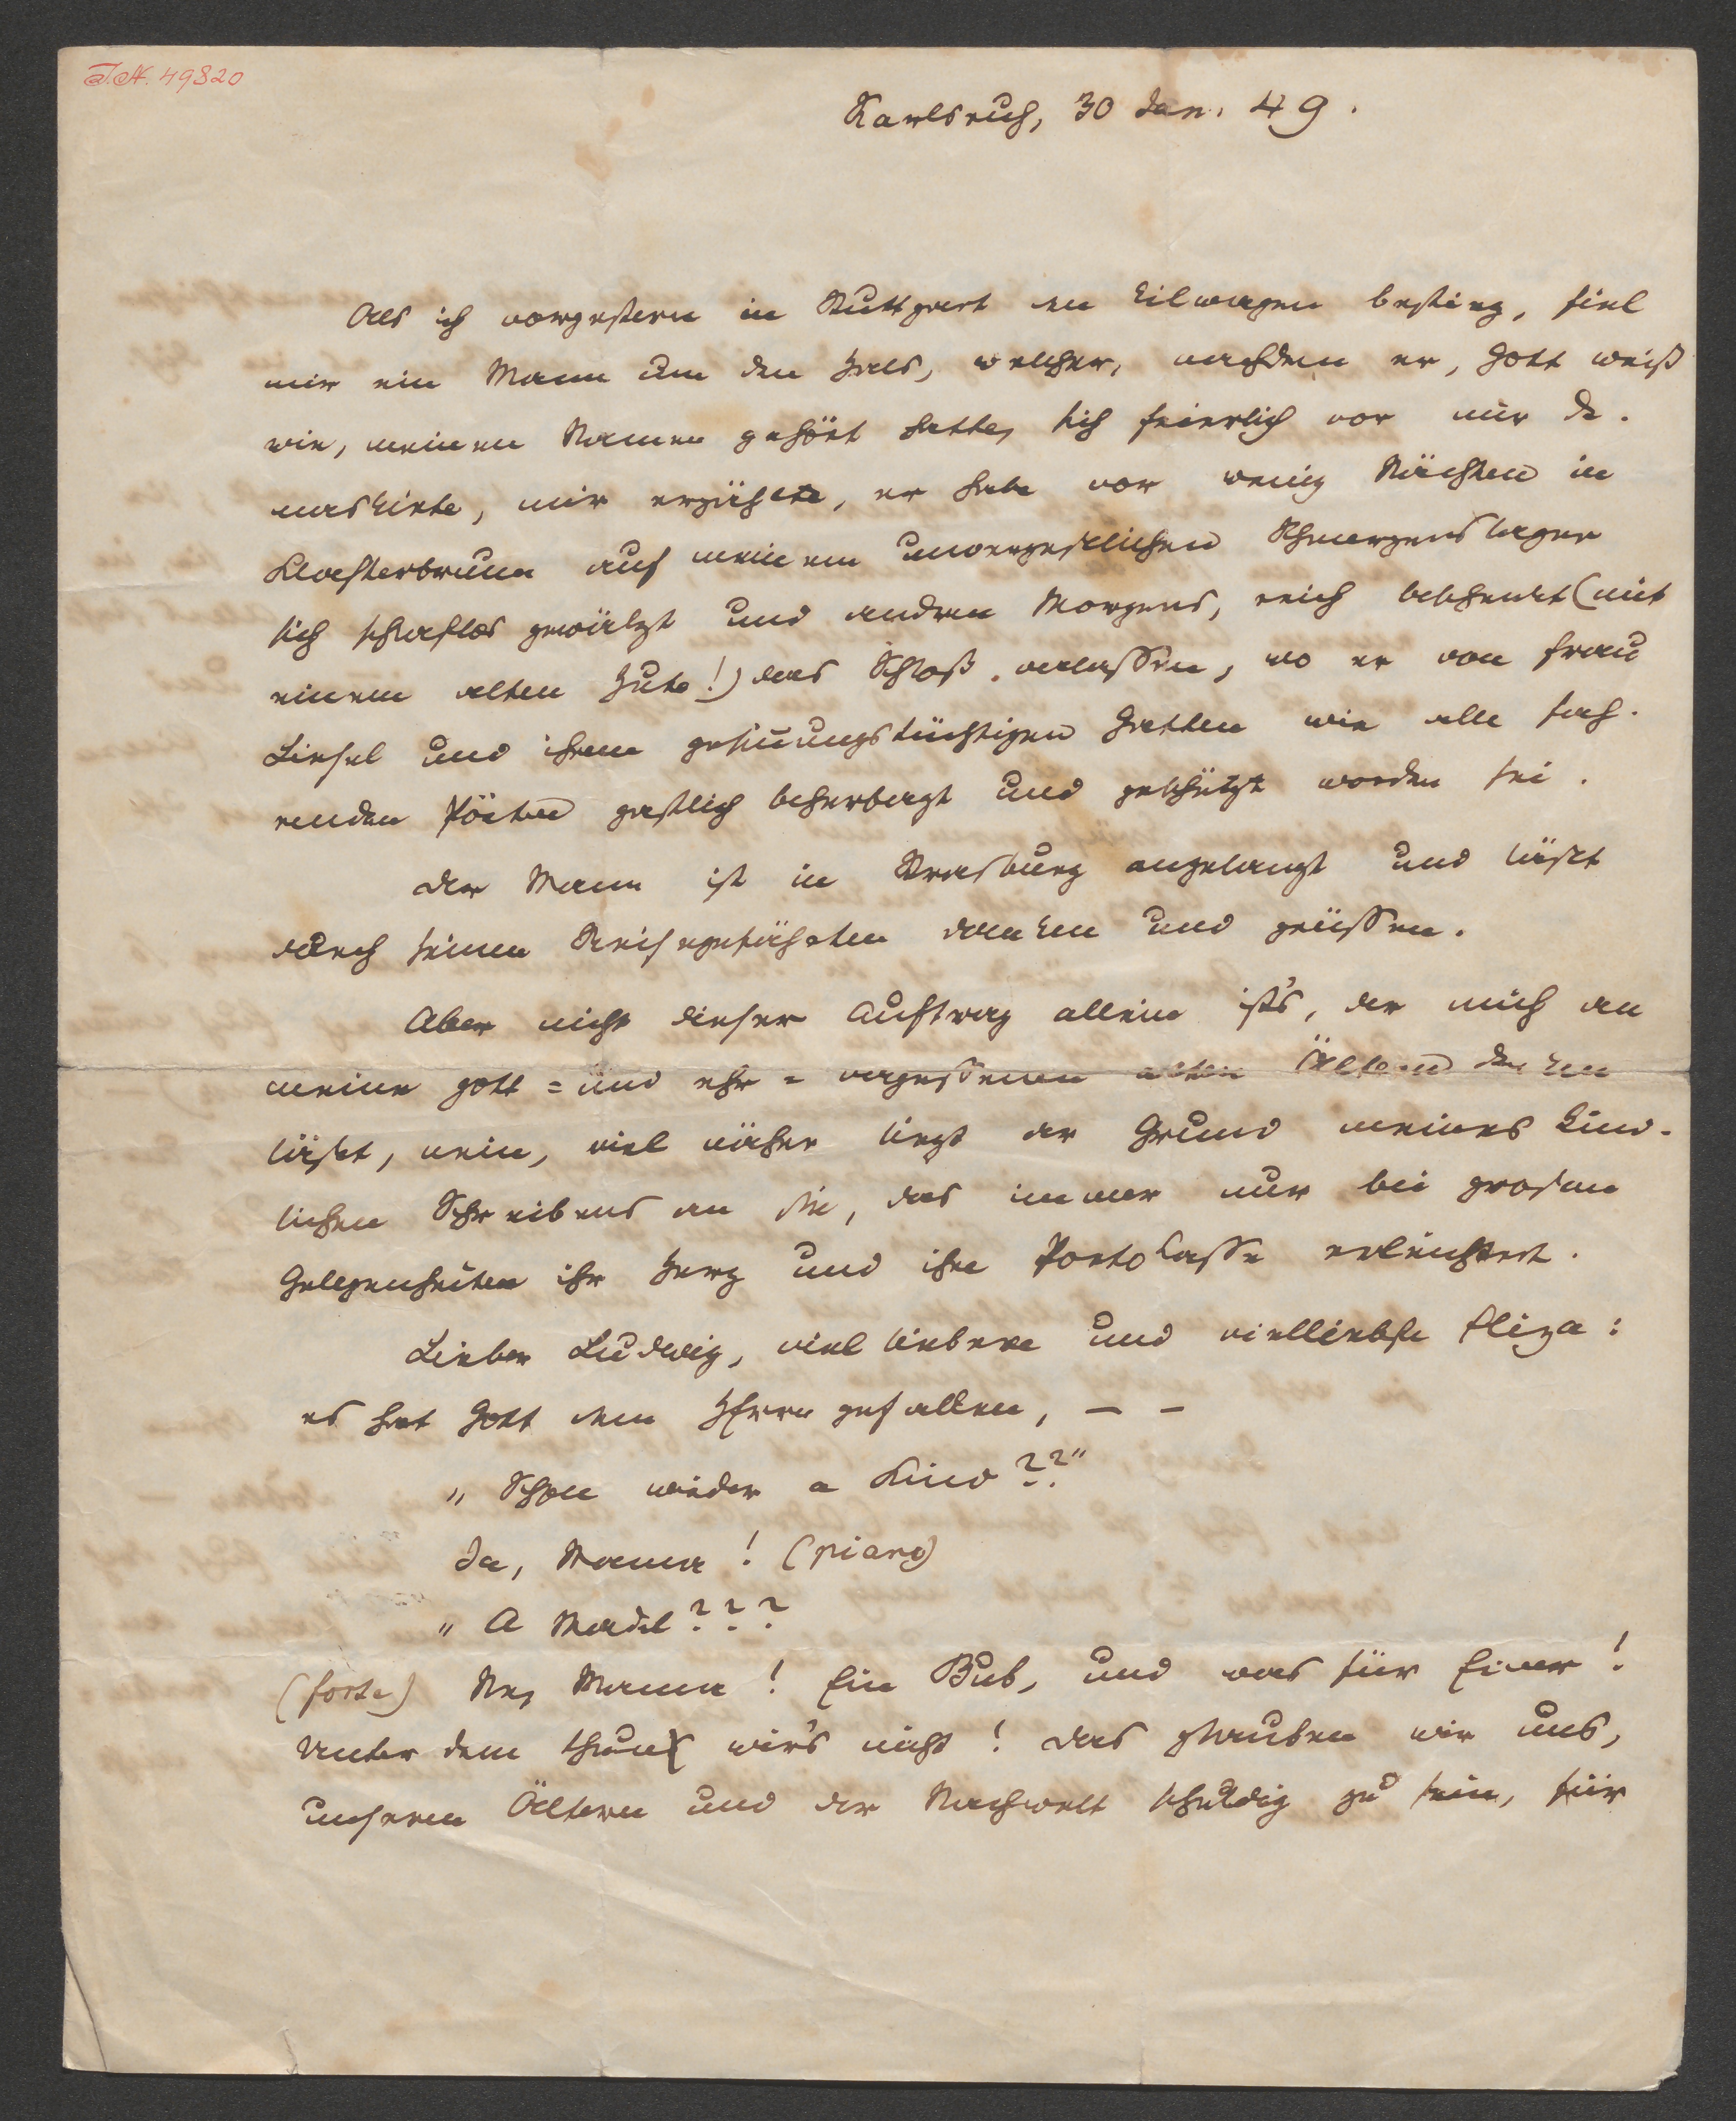 I.N. 49820
Karlsruh, 30 Jan. 49.
Als ich vorgestern in Stuttgart den Eilwagen bestieg, fiel
mir ein Mann um den Hals, welcher, nachdem er, Gott weiß
wie, meinen Namen gehört hatte, sich feierlich vor mir de-
maskirte, mir erzählte, er habe vor wenig Nächten in
Klosterbrunn auf meinem unvergeslichen Schmerzenslager
sich schlaflos gewälzt und andren Morgens, reich beschenkt (mit
einem alten Hute!) das Schloß verlassen, wo er von Frau
Liesel und ihrem gesinnungstüchtigen Gatten wie alle fah-
renden Poeten gastlich beherbergt und geschützt worden sei.
Der Mann ist in Strasburg angelangt und läßt
durch seinen Reisegefährten danken und grüssen.
Aber nicht dieser Auftrag allein ist's, der mich an
meine gott= und ehr= vergessenen alten Ältern denken
läßt, nein, viel näher liegt der Grund meines kind-
lichen Schreibens an sie, das immer nur bei grosen
Gelegenheiten ihr Herz und ihre Portokasse erleichtert.
Lieber Ludwig, viel liebere und vielliebste Eliza:
es hat Gott dem Herrn gefallen, — —
„Schon wieder a Kind??"
Ja, Mama! (piano)
„A Madel???
(forte) Ne, Mama! Ein Bub, und was für Einer!
Unter dem thun wir's nicht! Das glauben wir uns,
unseren Ältern und der Nachwelt schuldig zu sein, für